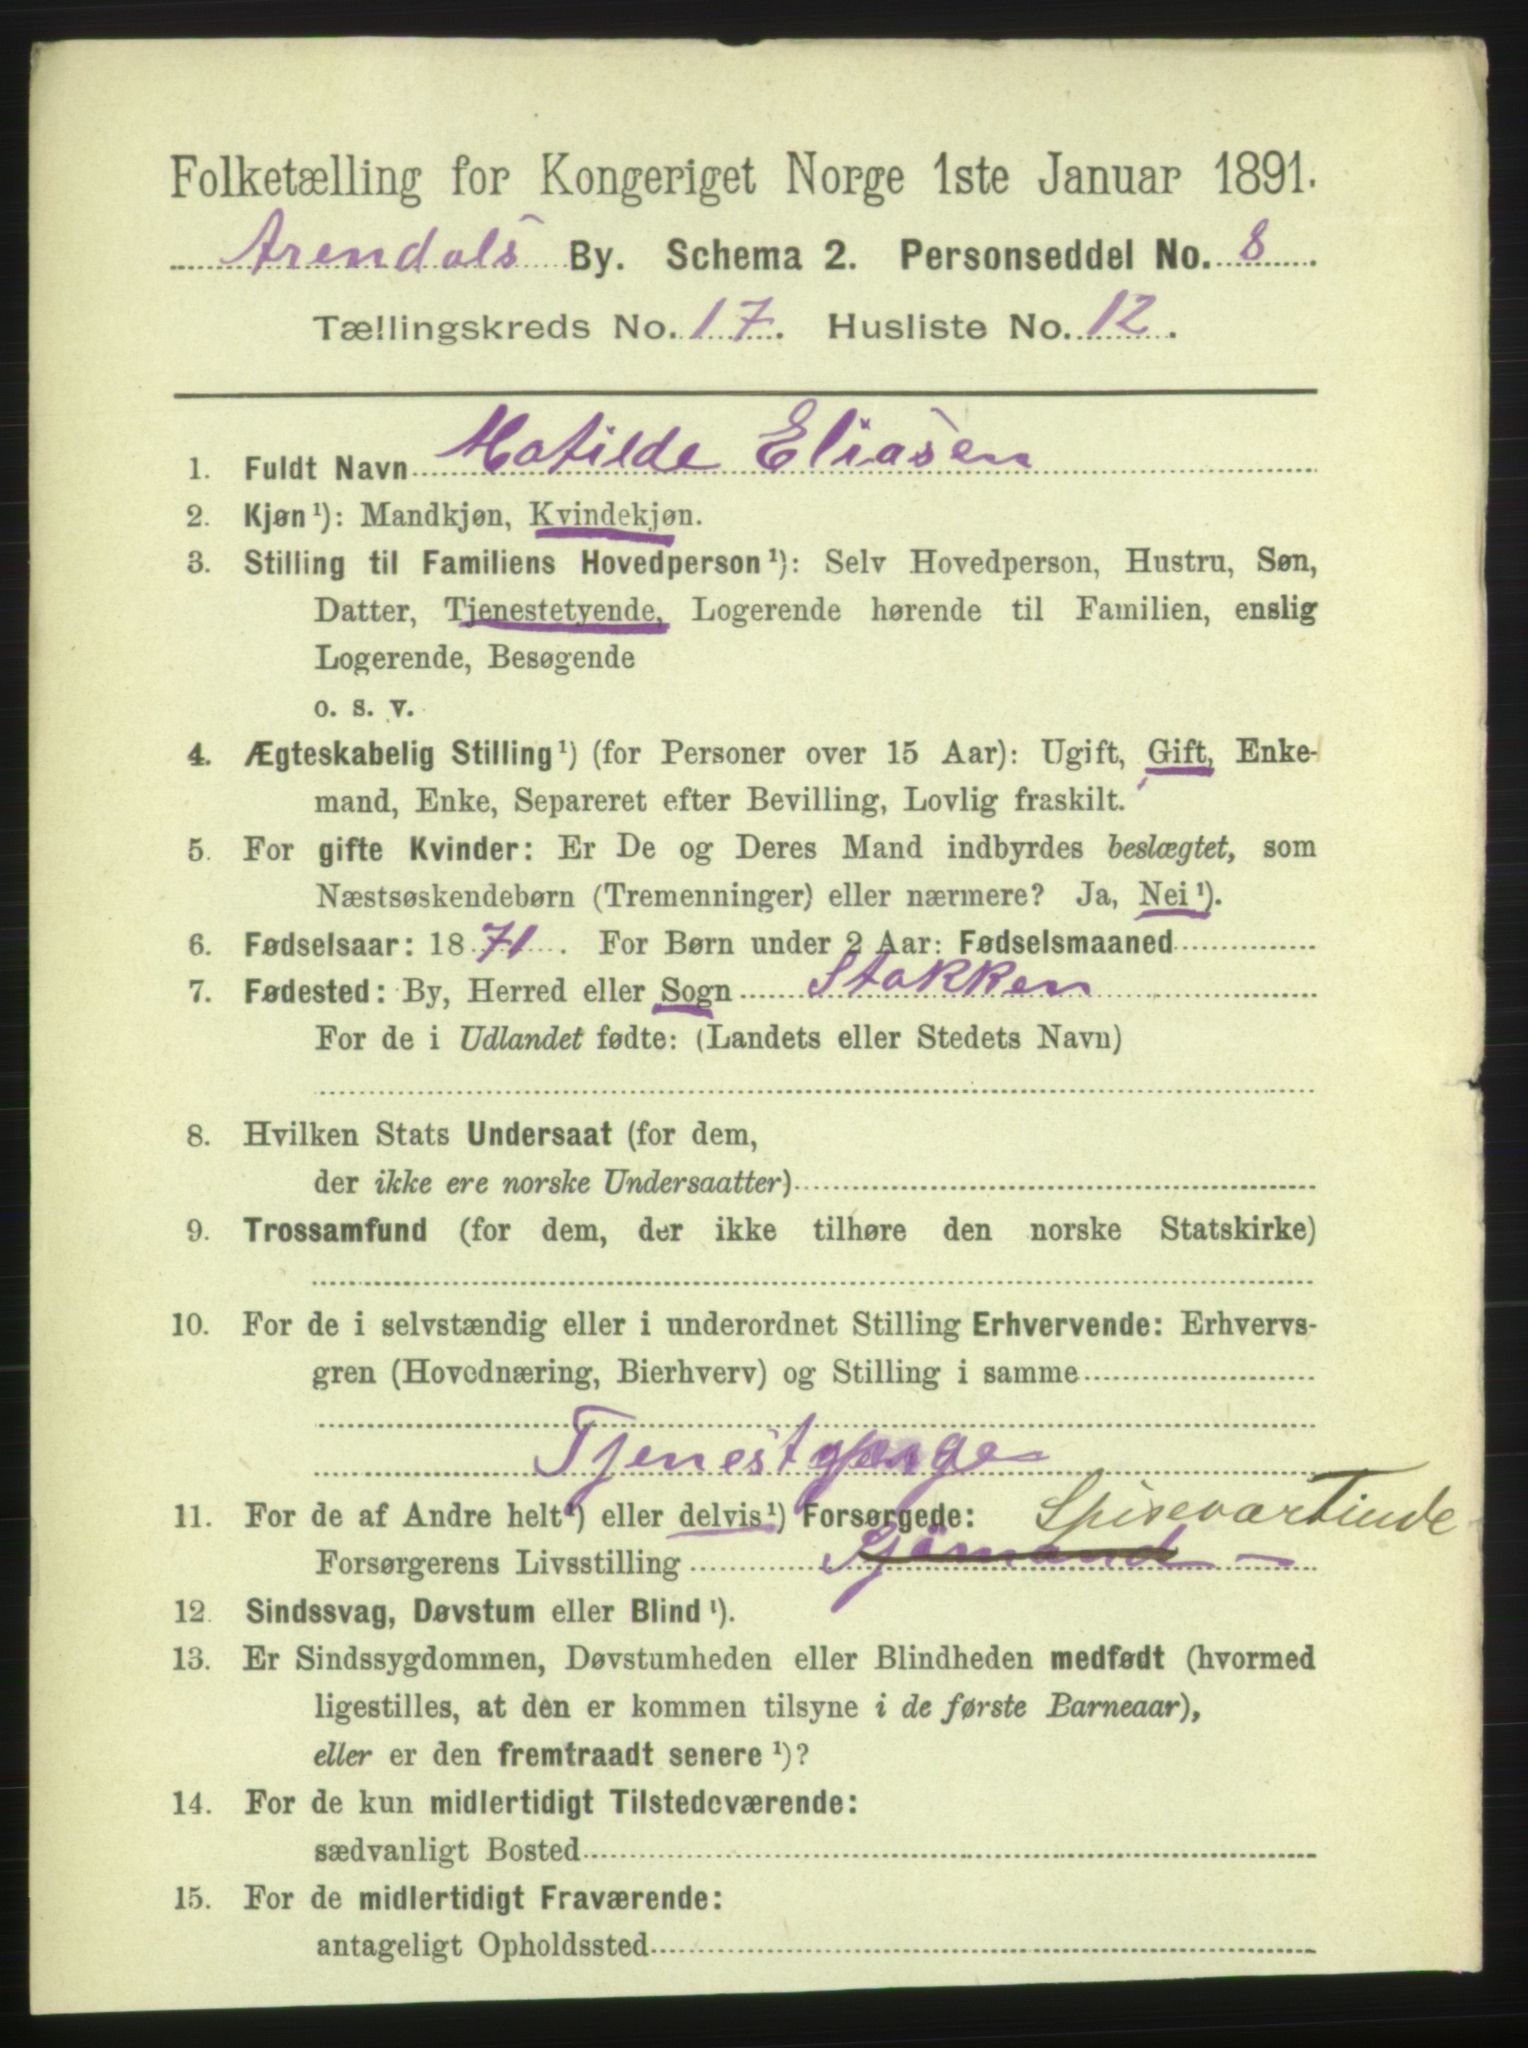 Folketælling for Kongeriget Norge 1ste Januar 1891.
Arendals By. Schema 2. Personseddel No. 8.
Tællingskreds No. 17. Husliste No. 12.
1. Fuldt Navn Matilde Eliasen
2. Kjøn ¹): Mandkjøn, Kvindekjøn.
3. Stilling til Familiens Hovedperson ¹): Selv Hovedperson, Hustru, Søn,
Datter, Tjenestetyende, Logerende hørende til Familien, enslig
Logerende, Besøgende
o. s. v.
4. Ægteskabelig Stilling ¹) (for Personer over 15 Aar): Ugift, Gift, Enke-
mand, Enke, Separeret efter Bevilling, Lovlig fraskilt.
5. For gifte Kvinder: Er De og Deres Mand indbyrdes beslægtet, som
Næstsøskendebørn (Tremenninger) eller nærmere? Ja, Nei ¹).
6. Fødselsaar: 1871. For Børn under 2 Aar: Fødselsmaaned
7. Fødested: By, Herred eller Sogn Stokken
For de i Udlandet fødte: (Landets eller Stedets Navn)
8. Hvilken Stats Undersaat (for dem,
der ikke ere norske Undersaatter)
9. Trossamfund (for dem, der ikke tilhøre den norske Statskirke)
10. For de i selvstændig eller i underordnet Stilling Erhvervende: Erhvervs-
gren (Hovednæring, Bierhverv) og Stilling i samme
Tjenestpige
11. For de af Andre helt ¹) eller delvis ¹) Forsørgede: Spisevartinde
Forsørgerens Livsstilling Sjømand
12. Sindssvag, Døvstum eller Blind ¹).
13. Er Sindssygdommen, Døvstumheden eller Blindheden medfødt (hvormed
ligestilles, at den er kommen tilsyne i de første Barneaar),
eller er den fremtraadt senere ¹)?
14. For de kun midlertidigt Tilstedeværende:
sædvanligt Bosted
15. For de midlertidigt Fraværende:
antageligt Opholdssted